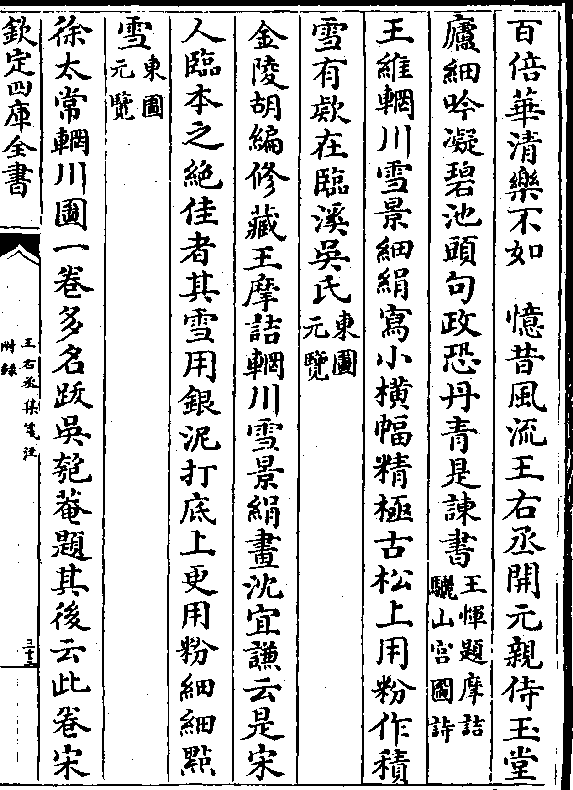 百倍華清樂不如　憶昔風流王右丞開元親侍玉堂
廬細吟凝碧池頭句政恐丹青是諫書王惲題摩詰驪山宫圖詩
王維輞川雪景細絹寫小橫幅精極古松上用粉作積
雪有欵在臨溪吳氏東圖元覽
金陵胡編修藏王摩詰輞川雪景絹畫沈宜謙云是宋
人臨本之絶佳者其雪用銀泥打底上更用粉細細㸃
雪東圖元覽
徐太常輞川圖一卷多名跋吳匏菴題其後云此卷宋
欽定四庫全書
王右丞集箋注
附錄
三十三